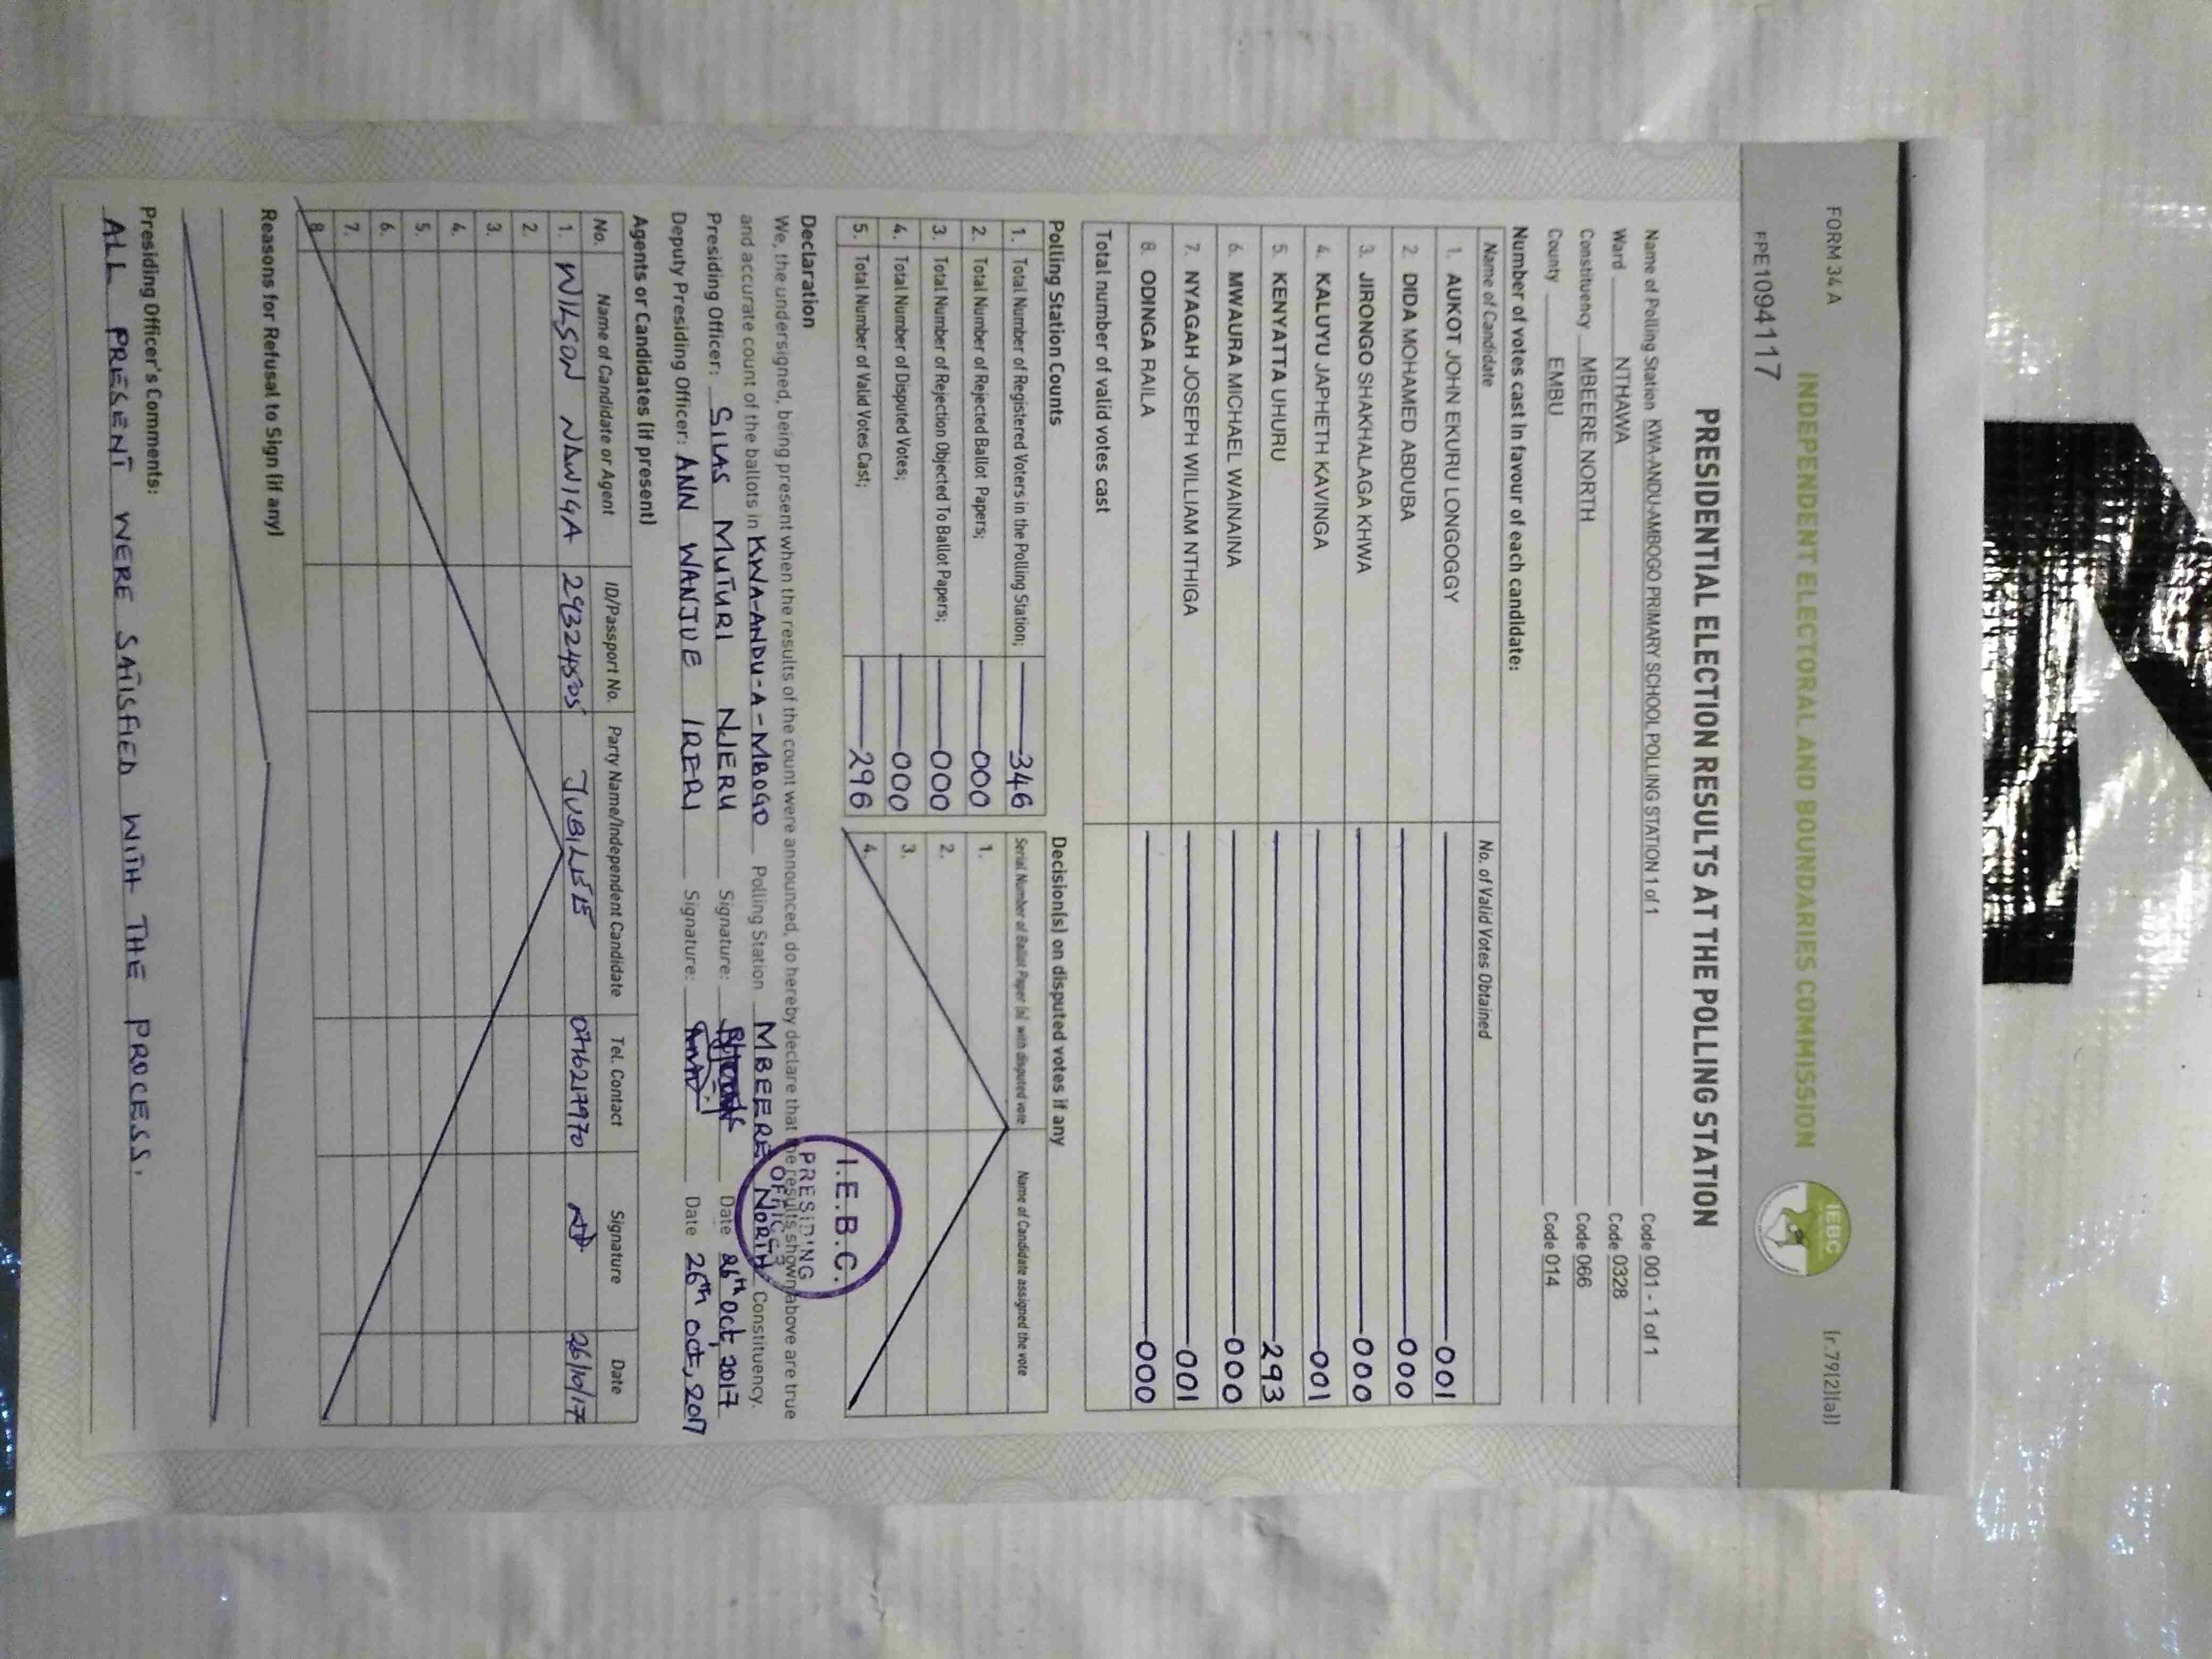 FORM 34 A
INDEPENDENT ELECTORAL AND BOUNDARIES COMMISSION
IEBC
[r.79(2)(a)]
FPE1094117
PRESIDENTIAL ELECTION RESULTS AT THE POLLING STATION
Name of Polling Station KWA-ANDU-AMBOGO PRIMARY SCHOOL POLLING STATION 1 of 1 Code 001 - 1 of 1
Ward NTHAWA Code 0328
Constituency MBEERE NORTH Code 066
County EMBU Code 014
Number of votes cast in favour of each candidate:
Name of Candidate No. of Valid Votes Obtained
1. AUKOT JOHN EKURU LONGOGGY 001
2. DIDA MOHAMED ABDUBA 000
3. JIRONGO SHAKHALAGA KHWA 000
4. KALUYU JAPHETH KAVINGA 001
5. KENYATTA UHURU 293
6. MWAURA MICHAEL WAINAINA 000
7. NYAGAH JOSEPH WILLIAM NTHIGA 001
8. ODINGA RAILA 000
Total number of valid votes cast
Polling Station Counts
1. Total Number of Registered Voters in the Polling Station; 346
2. Total Number of Rejected Ballot Papers; 000
3. Total Number of Rejection Objected To Ballot Papers; 000
4. Total Number of Disputed Votes; 000
5. Total Number of Valid Votes Cast; 296
Decision(s) on disputed votes if any
Serial Number of Ballot Paper (s) with disputed vote Name of Candidate assigned the vote
1.
2.
3.
4.
Declaration
We, the undersigned, being present when the results of the count were announced, do hereby declare that the results shown above are true
and accurate count of the ballots in KWA-ANDU-A-MBOGO Polling Station MBEERE NORTH Constituency.
Presiding Officer: SILAS MUTURI NJERU Signature: Date 26th Oct, 2017
Deputy Presiding Officer: ANN WANJUE IRERI Signature: Date 26th Oct, 2017
I.E.B.C.
PRESIDING
OFFICER
Agents or Candidates (if present)
No. Name of Candidate or Agent ID/Passport No. Party Name/Independent Candidate Tel. Contact Signature Date
1. WILSON 0716217970 JUBILEE 26/10/17
2.
3.
4.
5.
6.
7.
8.
Reasons for Refusal to Sign (if any)
Presiding Officer's Comments:
ALL PRESENT WERE SATISFIED WITH THE PROCESS.